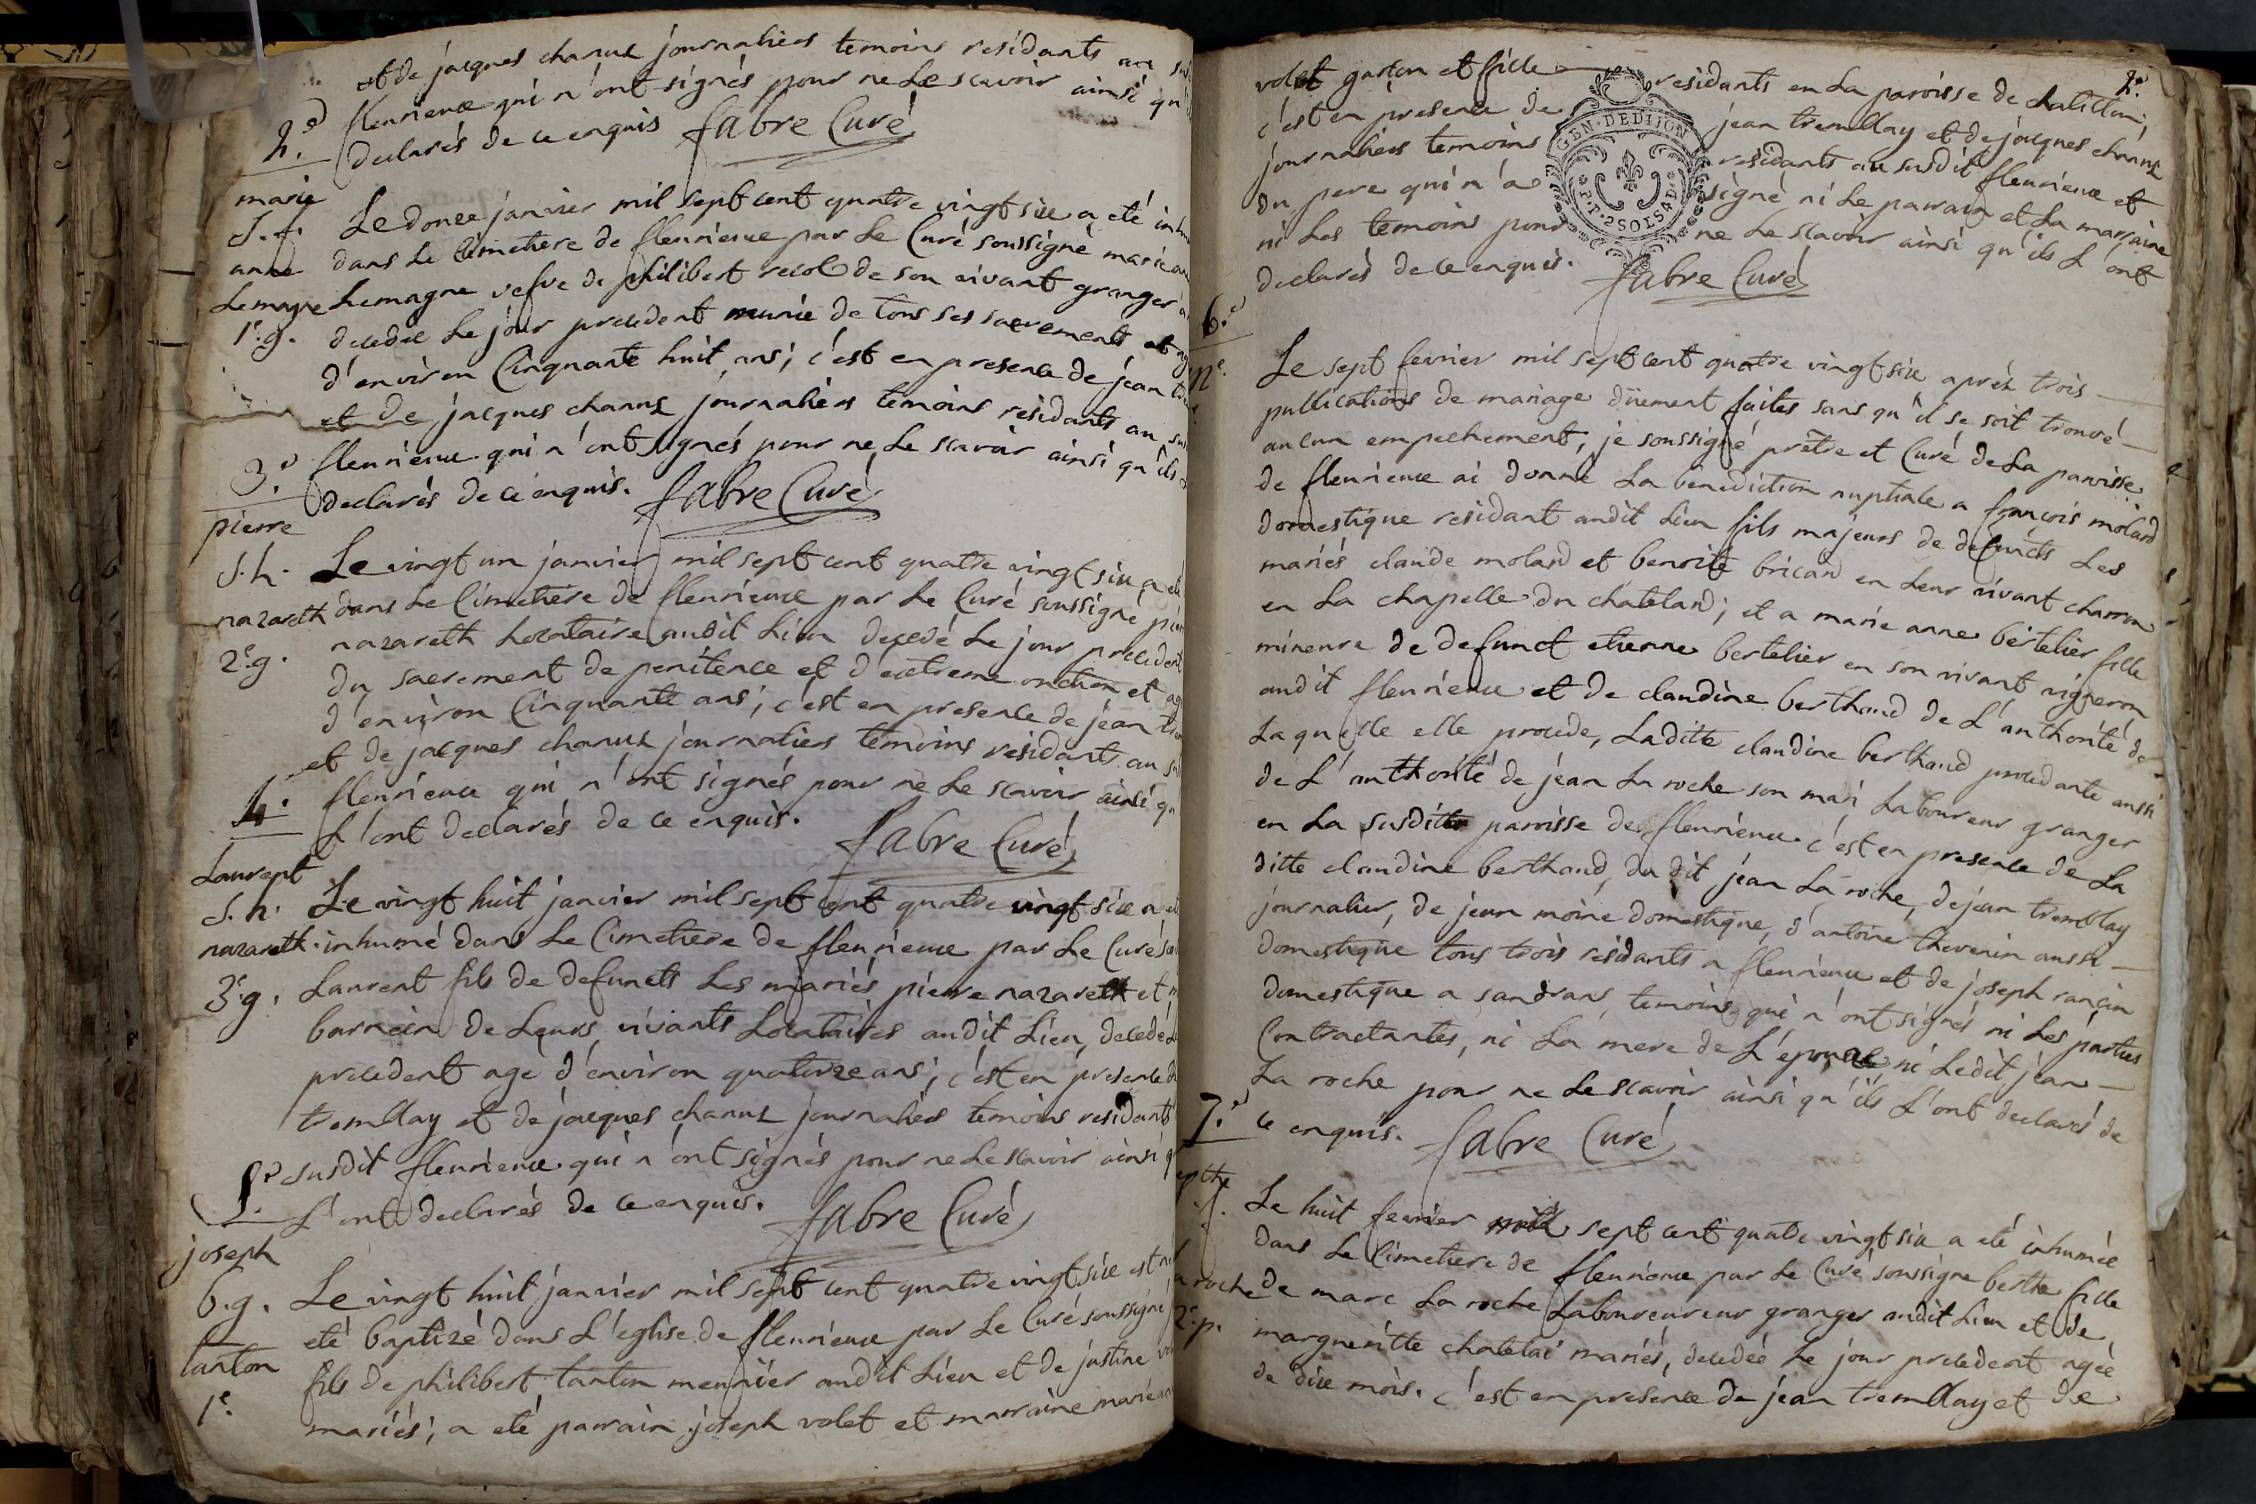 et de jacques charux journaliers temoins residants au
fleurieux qui n'ont signés pour ne le scavoir ainsi qu
declarés de ce enquis fabre Curé
2.e
marie
s.f.
anne
Lemagne
1.e g.
Le douze janvier mil sept cent quatre vingt six a eté
dans le Cimetiere de fleurieux par le Curé soussigné marie
Lemagne vefve de philibert recol de son vivant granger
decedée le jour precedent munie de tous ses sacrements et
d'environ Cinquante huit ans; c'est en presence de jean
et de jacques charux journaliers temoins residants au
fleurieux qui n'ont signés pour ne le scavoir ainsi qu'ils
declarés de ce enquis. fabre Curé
3.e
pierre
s.h.
nazareth
2.e g.
Le vingt un janvier mil sept cent quatre vingt six a eté
dans le Cimetiere de fleurieux par le Curé soussigné
nazareth Locataire audit Lieu decedé le jour precedent
du sacrement de penitence et d'extreme onction et
d'environ Cinquante ans; c'est en presence de jean
et de jacques charux journaliers temoins residants au
fleurieux qui n'ont signés pour ne le scavoir ainsi qu
L'ont declarés de ce enquis. fabre Curé
4.
Laurent
s.h.
nazareth
3.e g.
Le vingt huit janvier mil sept cent quatre vingt six a
inhumé dans le Cimetiere de fleurieux par le Curé
Laurent fils de defuncts les mariés pierre nazareth et
de Leurs vivants Locataires audit Lieu, decedé
precedent agé d'environ quatorze ans; c'est en presence
tremblay et de jacques charux journaliers temoins residants
susdit fleurieux qui n'ont signés pour ne le scavoir ainsi
L'ont declarés de ce enquis. fabre Curé
5.e
joseph
b.g.
tanton
1.e
Le vingt huit janvier mil sept cent quatre vingt six est
eté baptizé dans L'eglise de fleurieux par le Curé soussigné
fils de philibert tanton meunier audit Lieu et de justine
mariés; a eté parrain joseph volet et marraine marie
2.e
volet garçon et fille residants en La paroisse de chatillon;
c'est en presence de jean tremblay et de jacques charux
journaliers temoins residants au susdit fleurieux et
du pere qui n'a signé ni le parrain et La marraine
ni Les temoins pour ne le scavoir ainsi qu'ils L'ont
declarés de ce enquis. fabre Curé
GEN. DE DIJON
P.P. 2 SOLS 4 D.
6.e
Le sept fevrier mil sept cent quatre vingt six aprés trois
publications de mariage düement faites sans qu'il se soit trouvé
aucun empechement, je soussigné prêtre et Curé de La paroisse
de fleurieux ai donné La benediction nuptiale a françois molard
domestique residant audit Lieu fils majeurs de defuncts Les
mariés claude molard et benoite bricard en Leur vivant charron
en La chapelle du chatelard; et a marie anne bertelier fille
mineure de defunct etienne bertelier en son vivant vigneron
audit fleurieux et de claudine berthaud de L'authorité de
Laquelle elle procede, Laditte claudine berthaud procedante aussi
de L'authorité de jean La roche son mari Laboureur granger
en La susditte paroisse de fleurieux c'est en presence de La
ditte claudine berthaud, du dit jean La roche, de jean tremblay
journalier, de jean moine domestique, d'antoine thevenin aussi
domestique tous trois residants a fleurieux et de joseph rançin
domestique a sandrans, temoins qui n'ont signés ni Les parties
Contractantes, ni La mere de L'epouse ni Ledit jean
La roche pour ne le scavoir ainsi qu'ils L'ont declaré de
ce enquis. fabre Curé
7.e
roche
2.e p.
Le huit fevrier mil sept cent quatre vingt six a eté inhumée
dans le Cimetiere de fleurieux par le Curé soussigné berthe fille
de marc La roche Laboureureur granger audit Lieu et de
margueritte chatelai mariés, decedée le jour precedent agée
de dix mois. c'est en presence de jean tremblay et de